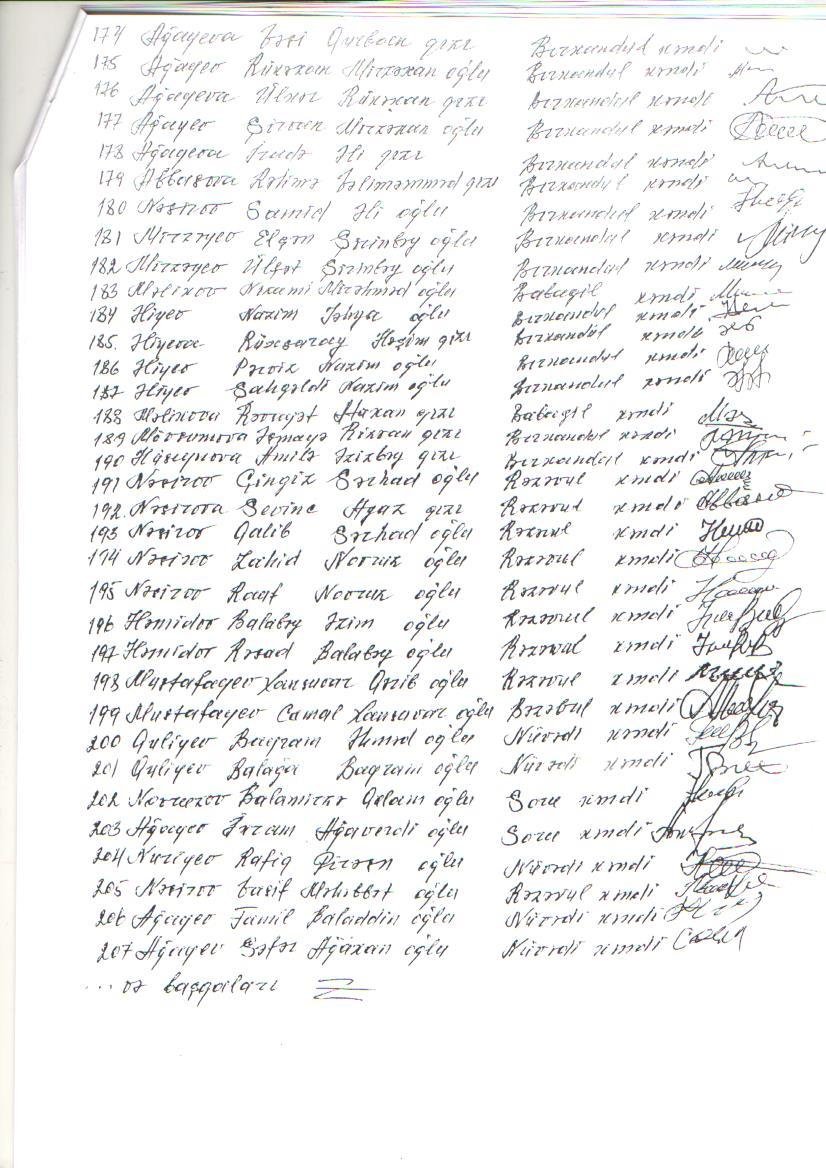 174 Ağayeva Qurban qızı Burzandul kəndi
175 Ağayev Rüxəxan Mirzəxan oğlu Burzandul kəndi
176 Ağayeva Ülkər Rüxəxan qızı Burzandul kəndi
177 Ağayev Şirvan Mirzəxan oğlu Burzandul kəndi
178 Ağayeva İradə Əli qızı Burzandul kəndi
179 Abbasova Rəhimə qızı Burzandul kəndi
180 Nəsirov Samid Əli oğlu Burzandul kəndi
181 Mirzəyev Elçin Şirinbəy oğlu Burzandul kəndi
182 Mirzəyev Ülfət Şirinbəy oğlu Burzandul kəndi
183 Məlikov Nizami Mirəhməd oğlu Babagil kəndi
184 Əliyev Nazim Yəhya oğlu Burzandul kəndi
185. Əliyeva Rüxsaray Həşim qızı Burzandul kəndi
186 Əliyev Pərviz Nazim oğlu Burzandul kəndi
187 Əliyev Şahgəldi Nazim oğlu Burzandul kəndi
188 Məlikova Rəvayət Əhəxan qızı Babagil kəndi
189 Mövsumova Rizvan qızı Burzandul kəndi
190 Hüseynova Amilə Əzizbəy qızı Burzandul kəndi
191 Nəsirov Çingiz Sərhad oğlu Rəzvul kəndi
192. Nəsirova Sevinc Ayaz qızı Rəzvul kəndi
193 Nəsirov Qalib Sərhad oğlu Rəzvul kəndi
194 Nəsirov Zahid Novruz oğlu Rəzvul kəndi
195 Nəsirov Rauf Novruz oğlu Rəzvul kəndi
196 Həmidov Balabəy Əzim oğlu Rəzvul kəndi
197 Həmidov Rəşad Balabəy oğlu Rəzvul kəndi
198 Mustafayev Xansuvar Qərib oğlu Rəzvul kəndi
199 Mustafayev Camal Xansuvar oğlu Rəzvul kəndi
200 Quliyev Bayram Əhməd oğlu Nüvədi kəndi
201 Quliyev Balağa Bayram oğlu Nüvədi kəndi
202 Balamirzə Aslam oğlu Soru kəndi
203 Ağayev İkram Ağaverdi oğlu Soru kəndi
204 Nuriyev Rafiq oğlu Nüvədi kəndi
205 Nəsirov Vasif Məhəbbət oğlu Rəzvul kəndi
206 Ağayev Famil Baladdin oğlu Nüvədi kəndi
207 Ağayev Səfər Ağaxan oğlu Nüvədi kəndi
... və başqaları